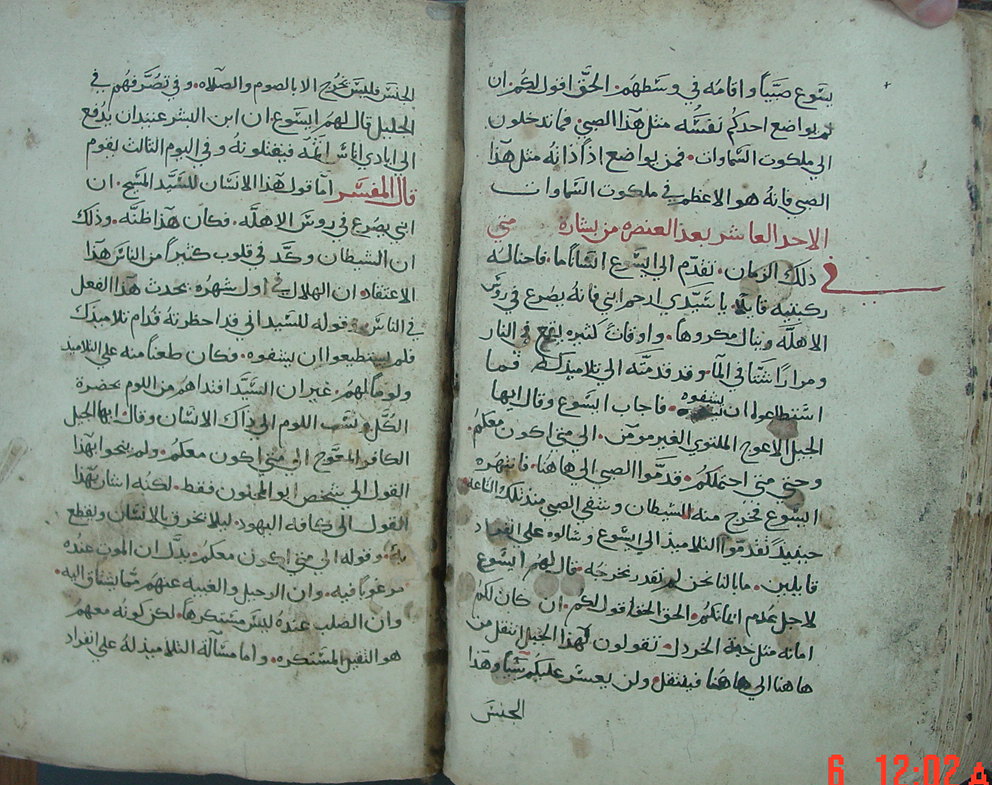 يسوع صبياً واقامه في وسطهم. الحق اقول لكم. ان
لم يواضع احدكم نفسه مثل هذا الصبي. فما تدخلون
الي ملكوت السماوات. فمن يواضع اذاً ذاته مثل هذا
الصبي فانه هو الاعظم في ملكوت السماوات
الاحد العاشر بعد العنصره من بشارة متي
في ذلك الزمان. تقدم الي ايسوع انساناً ما. فاحنا له
ركبتيه قايلاً. يا سيدي ارحم ابني فانه يصرع في روس
الاهله وينال مكروهاً. واوقات كثيره يقع في النار
ومراراً شتا في الما. وقد قدمته الي تلاميذك فما
استطاعوا ان يشفوه. فاجاب ايسوع وقال ايها
الجيل الاعوج الملتوي الغير مومن. الي متي اكون معكم.
وحتي متي احتملكم. قدموا الصبي الي هاهنا. فانتهره
ايسوع فخرج منه الشيطان وشفي الصبي منذ تلك الساعه
حينيذ تقدموا التلاميذ الي ايسوع وسالوه علي انفراد
قايلين. ما بالنا نحن لم نقدر نخرجه. قال لهم ايسوع
لاجل عدم ايمانكم. الحق الحق اقول لكم. ان كان لكم
امانه مثل حبة الخردل. تقولون لهذا الجبل انتقل من
هاهنا الي هاهنا فينتقل. ولن يعسر عليكم شياً وهذا
الجنس
الجنس فليس يخرج الا بالصوم والصلاه. وفي تصرفهم في
الجليل قال لهم ايسوع ان ابن البشر عتيد ان يدفع
الي ايادي اناس اثمه فيقتلونه وفي اليوم الثالث يقوم
قال المفسر اما قول هذا الانسان للسيد المسيح. ان
ابني يصرع في روس الاهله. فكان هذا ظنه. وذلك
ان الشيطان وكد في قلوب كثيراً من الناس هذا
الاعتقاد. ان الهلال في اول شهره. يحدث هذا الفعل
في الناس. وقوله للسيد اني قد احضرته قدام تلاميذك
فلم يستطيعوا ان يشفوه. فكان طعناً منه علي التلاميذ
ولوماً لهم. غير ان السيد افتداهم من اللوم بحضرة
الكل ونسب اللوم الي ذاك الانسان وقال. ايها الجيل
الكافر المعوج الي متي اكون معكم. ولم ينحوا بهذا
القول الي شخص ابو المجنون فقط. لكنه اشار بهذا
القول الي كافه اليهود. ليلا يخرق بالانسان ويقطع
به. وقوله الي متي اكون معكم. يدل ان الموت عنده
مرغوباً فيه. وان الرحيل والغيبه عنهم مما يشتاق اليه.
وان الصلب عنده ليس مستكرهاً. لكن كونه معهم
هو الثقيل المستكره. واما مسالة التلاميذ له علي انفراد
6 12:02